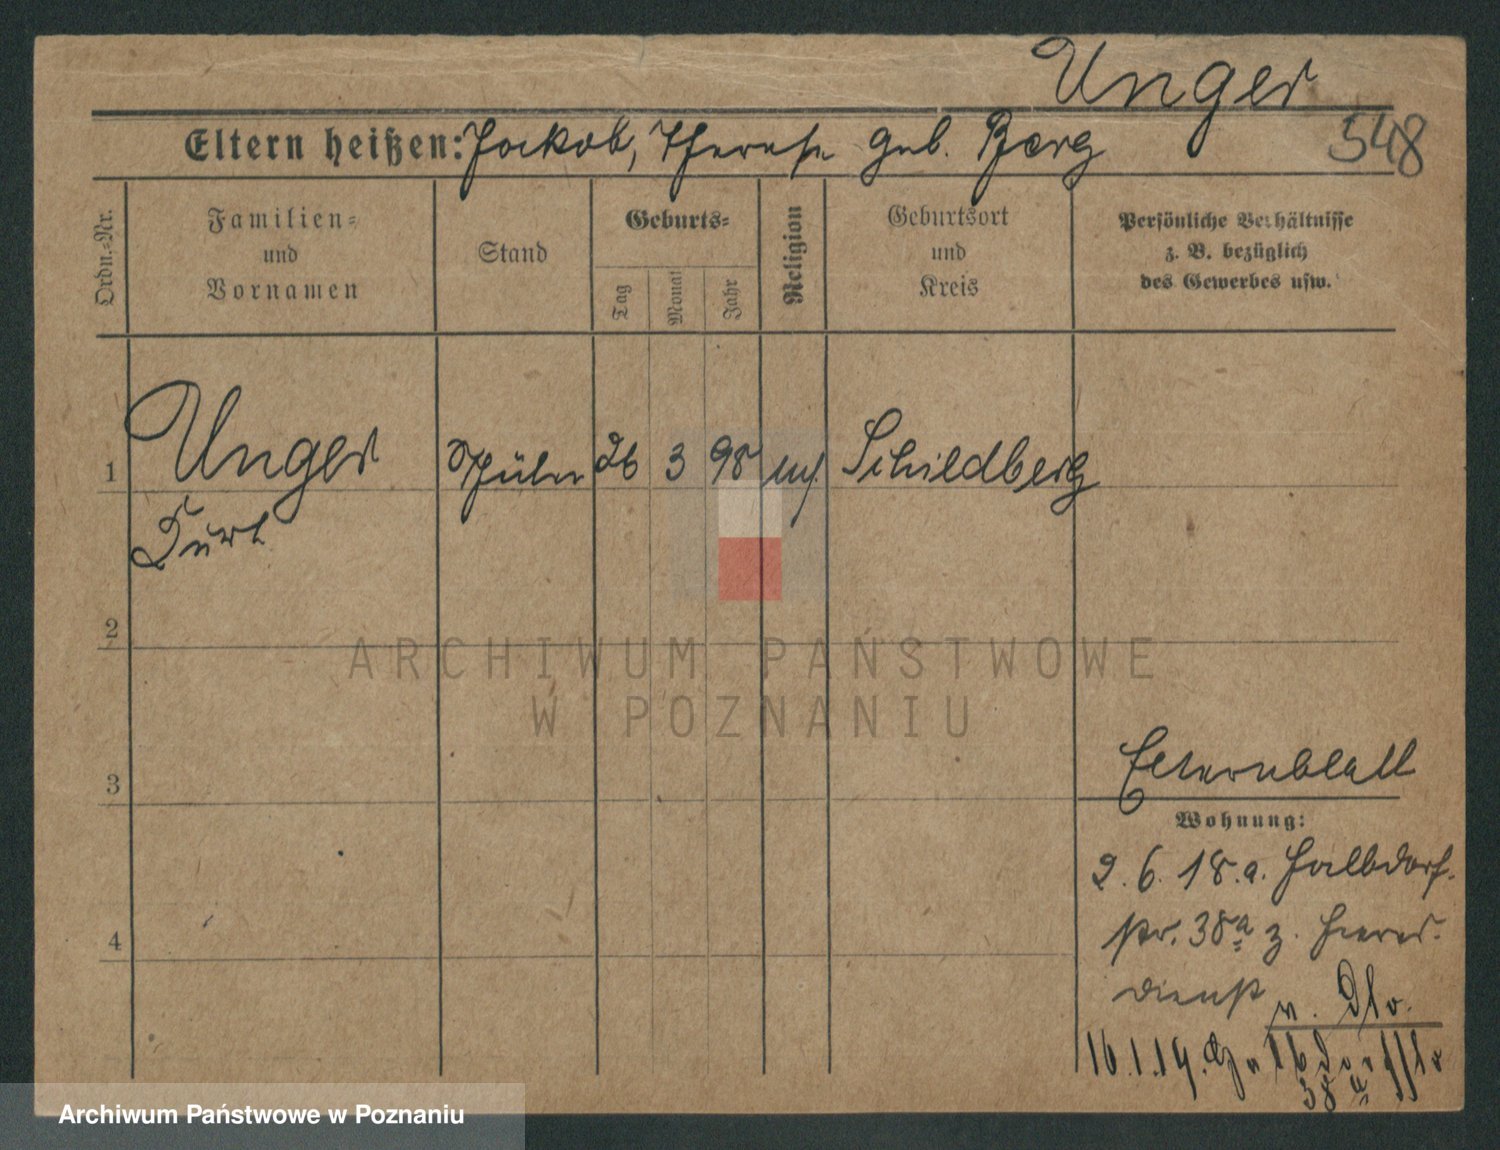 Unger
548
Eltern heißen: Jakob, Therese geb. Berg
Ordn.-Nr.
Familien-
und
Vornamen
Stand
Geburts-
Tag
Monat
Jahr
Religion
Geburtsort
und
Kreis
Persönliche Verhältnisse
z. B. bezüglich
des Gewerbes usw.
1 Unger Schüler 26 3 98 Schildberg
Kurt
2
ARCHIWUM PAŃSTWOWE
W POZNANIU
3
Elternblatt
Wohnung:
2.6.18. a. Halbdorf-
str. 38a z. Heeres-
dienst
4
16.1.19. Halbdorfstr
38a
Archiwum Państwowe w Poznaniu